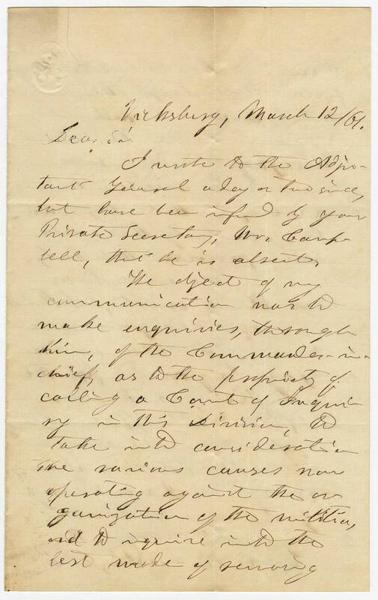 Vicksburg, March 12/61.
Dear Sir
I wrote to the Adju-
tant General a day or two since,
but have been infmd by your
Private Secretary, Mr. Camp-
bell, that he is absent.
The object of my
communication was to
make enquiries, through
him, of the Commander-in-
chief, as to the propriety of
calling a Court of Inqui-
ry in this Division, to
take into consideration
the various causes now
operating against the or-
ganization of the militia,
and to inquire into the
best mode of removing